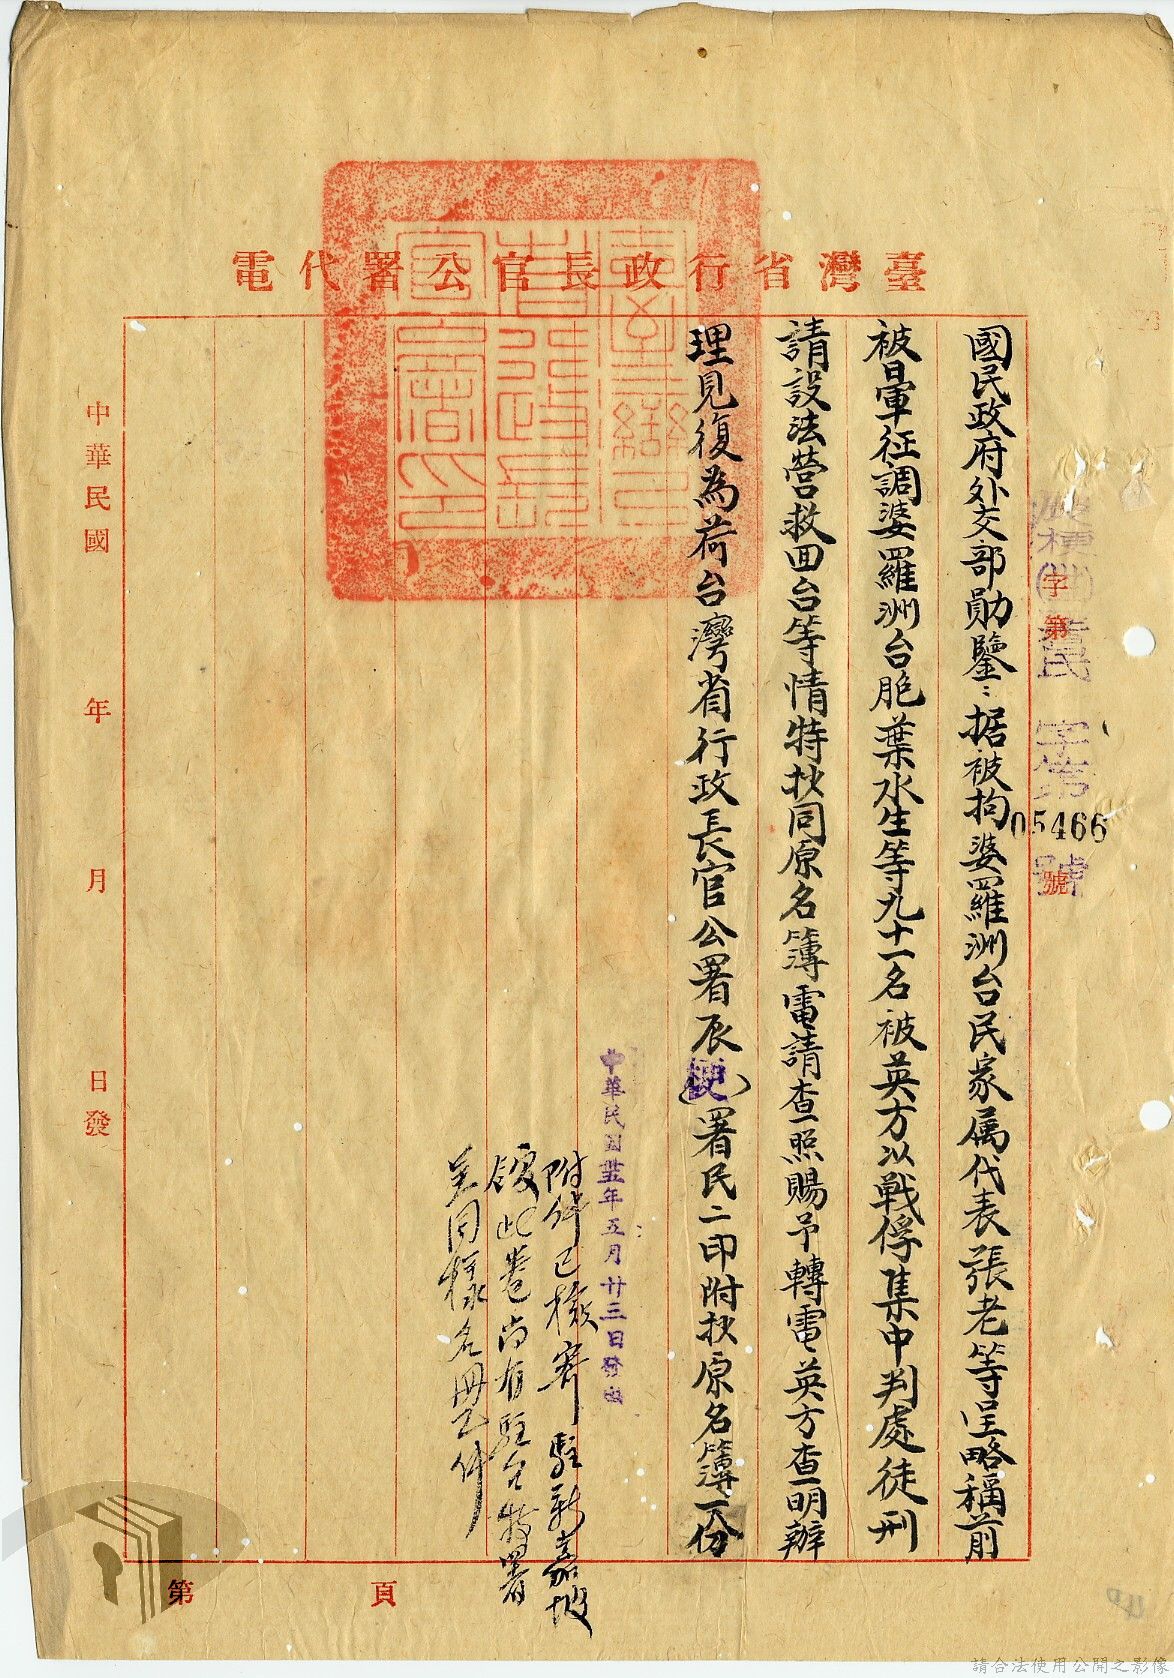 臺灣省行政長官公署代電
字第 號
字第 號
05466
國民政府外交部勛鑒：据被拘婆羅洲台民家属代表張老等呈略稱前
被日軍征調婆羅洲台胞葉水生等九十一名被英方以戰俘集中判處徒刑
請設法營救回台等情特抄同原名簿電請查照賜予轉電英方查明辦
理見復為荷台灣省行政長官公署辰(梗)署民二印附抄原名簿一份
中華民國卅五年五月廿三日發出
附件已檢寄駐新嘉坡
領此卷尚有駐台特署
呈同樣名冊乙件
中華民國 年 月 日發
第 頁
請合法使用公開之影像